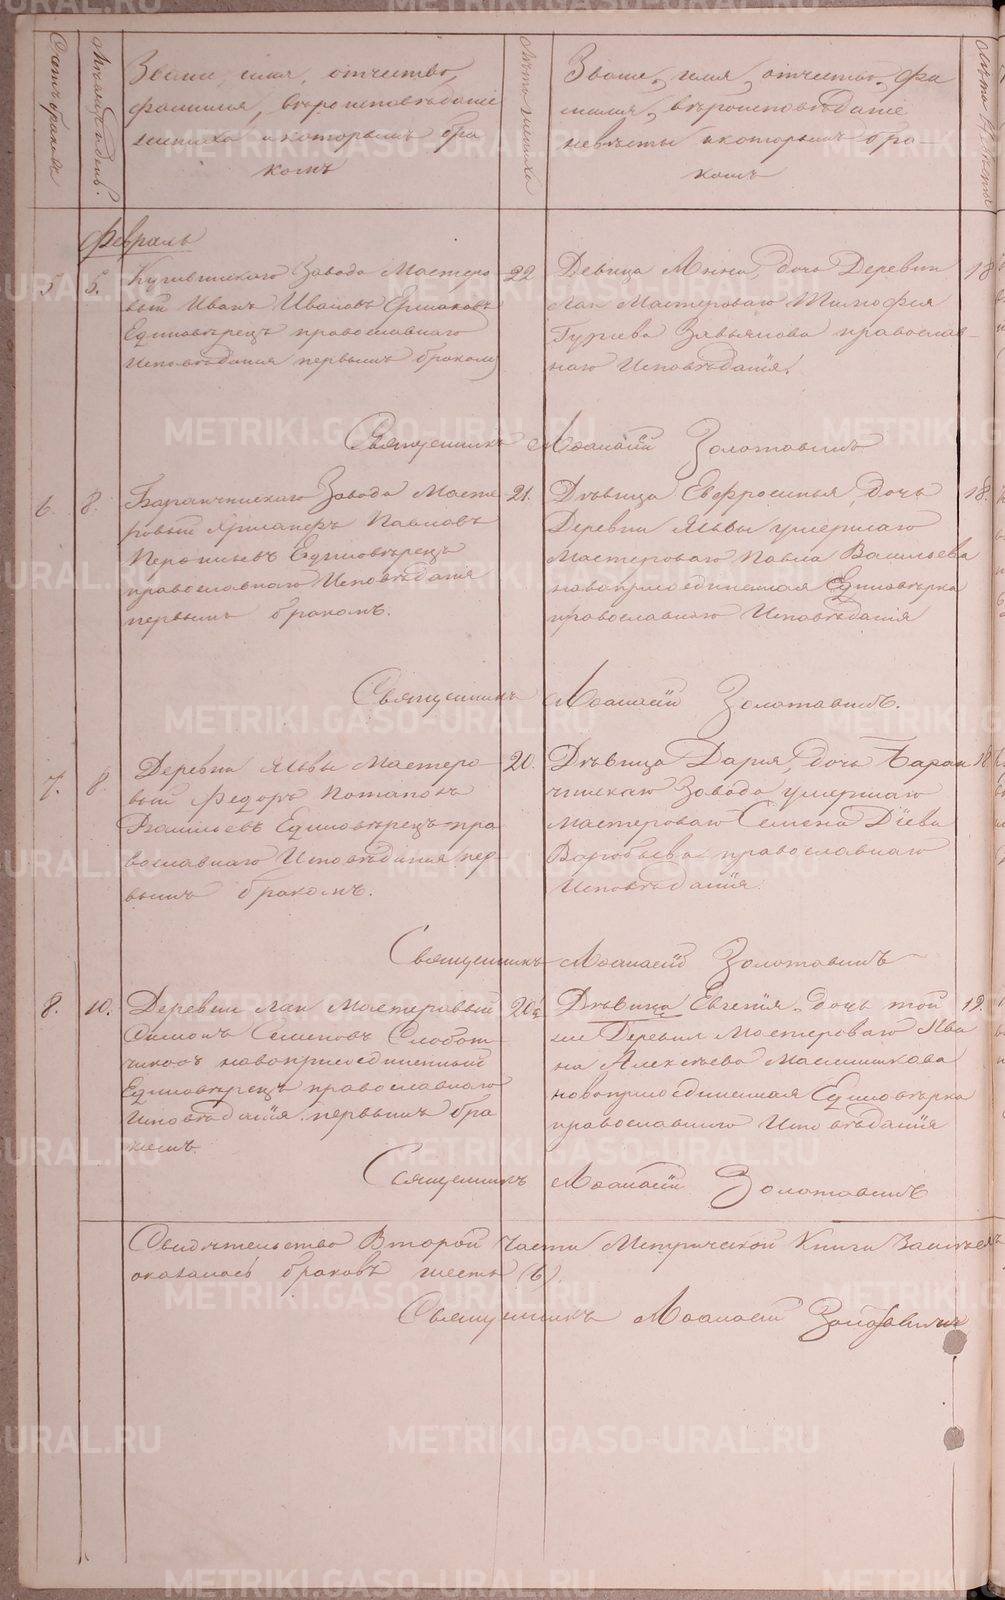 Счетъ браковъ
Мѣсяцъ и день
Званіе, имя, отчество,
фамилия, вѣроисповѣданіе
жениха и которымъ бра
комъ
Лѣта жениха
Званіе, имя, отчество, фа
милия, вѣроисповѣданіе
невѣсты и которымъ бра-
комъ
Лѣта невѣсты
Февраль
5. 5. Кушвинскаго Завода Мастеро
вый Иванъ Ивановъ Ермаковъ
Единовѣрецъ православнаго
Исповѣданія первымъ бракомъ
22
Девица Анна, дочь Деревни
Лаи Мастероваго Тимофея
Гурьева Завьялова православ-
наго Исповѣданія.
18
Священникъ Афанасій Золотавинъ
6. 8. Баранчинскаго Завода Масте
ровый Павловъ
Единовѣрецъ
православнаго Исповѣданія
первымъ бракомъ.
21.
Дѣвица Евфросинья, дочь
Деревни умершаго
Мастероваго Павла Васильева
новоприсоединенная Единовѣрка
православнаго Исповѣданія
18.
Священникъ Афанасій Золотавинъ.
7. 8. Деревни Мастеро
вый Федоръ Потаповъ
Васильевъ Единовѣрецъ пра
вославнаго Исповѣданія пер
вымъ бракомъ.
20.
Дѣвица Дарья, дочь Баран
чинскаго Завода умершаго
мастероваго Семена Діева
Воробьева православнаго
Исповѣданія.
18.
Священникъ Афанасій Золотавинъ
8. 10. Деревни Лаи Мастеровый
Семеновъ Слобот
чиковъ новоприсоединенный
Единовѣрецъ православнаго
Исповѣданія первымъ бра
комъ.
20
Дѣвица Евгенія, дочь той
же Деревни Мастероваго Ива
на Алексѣева
новоприсоединенная Единовѣрка
православнаго Исповѣданія
19.
Священникъ Афанасій Золотавинъ
Свидѣтельство Второй части Метрической Книги
оказалось браковъ шесть (6)
Священникъ Афанасій Золотавинъ
METRIKI.GASO-URAL.RU